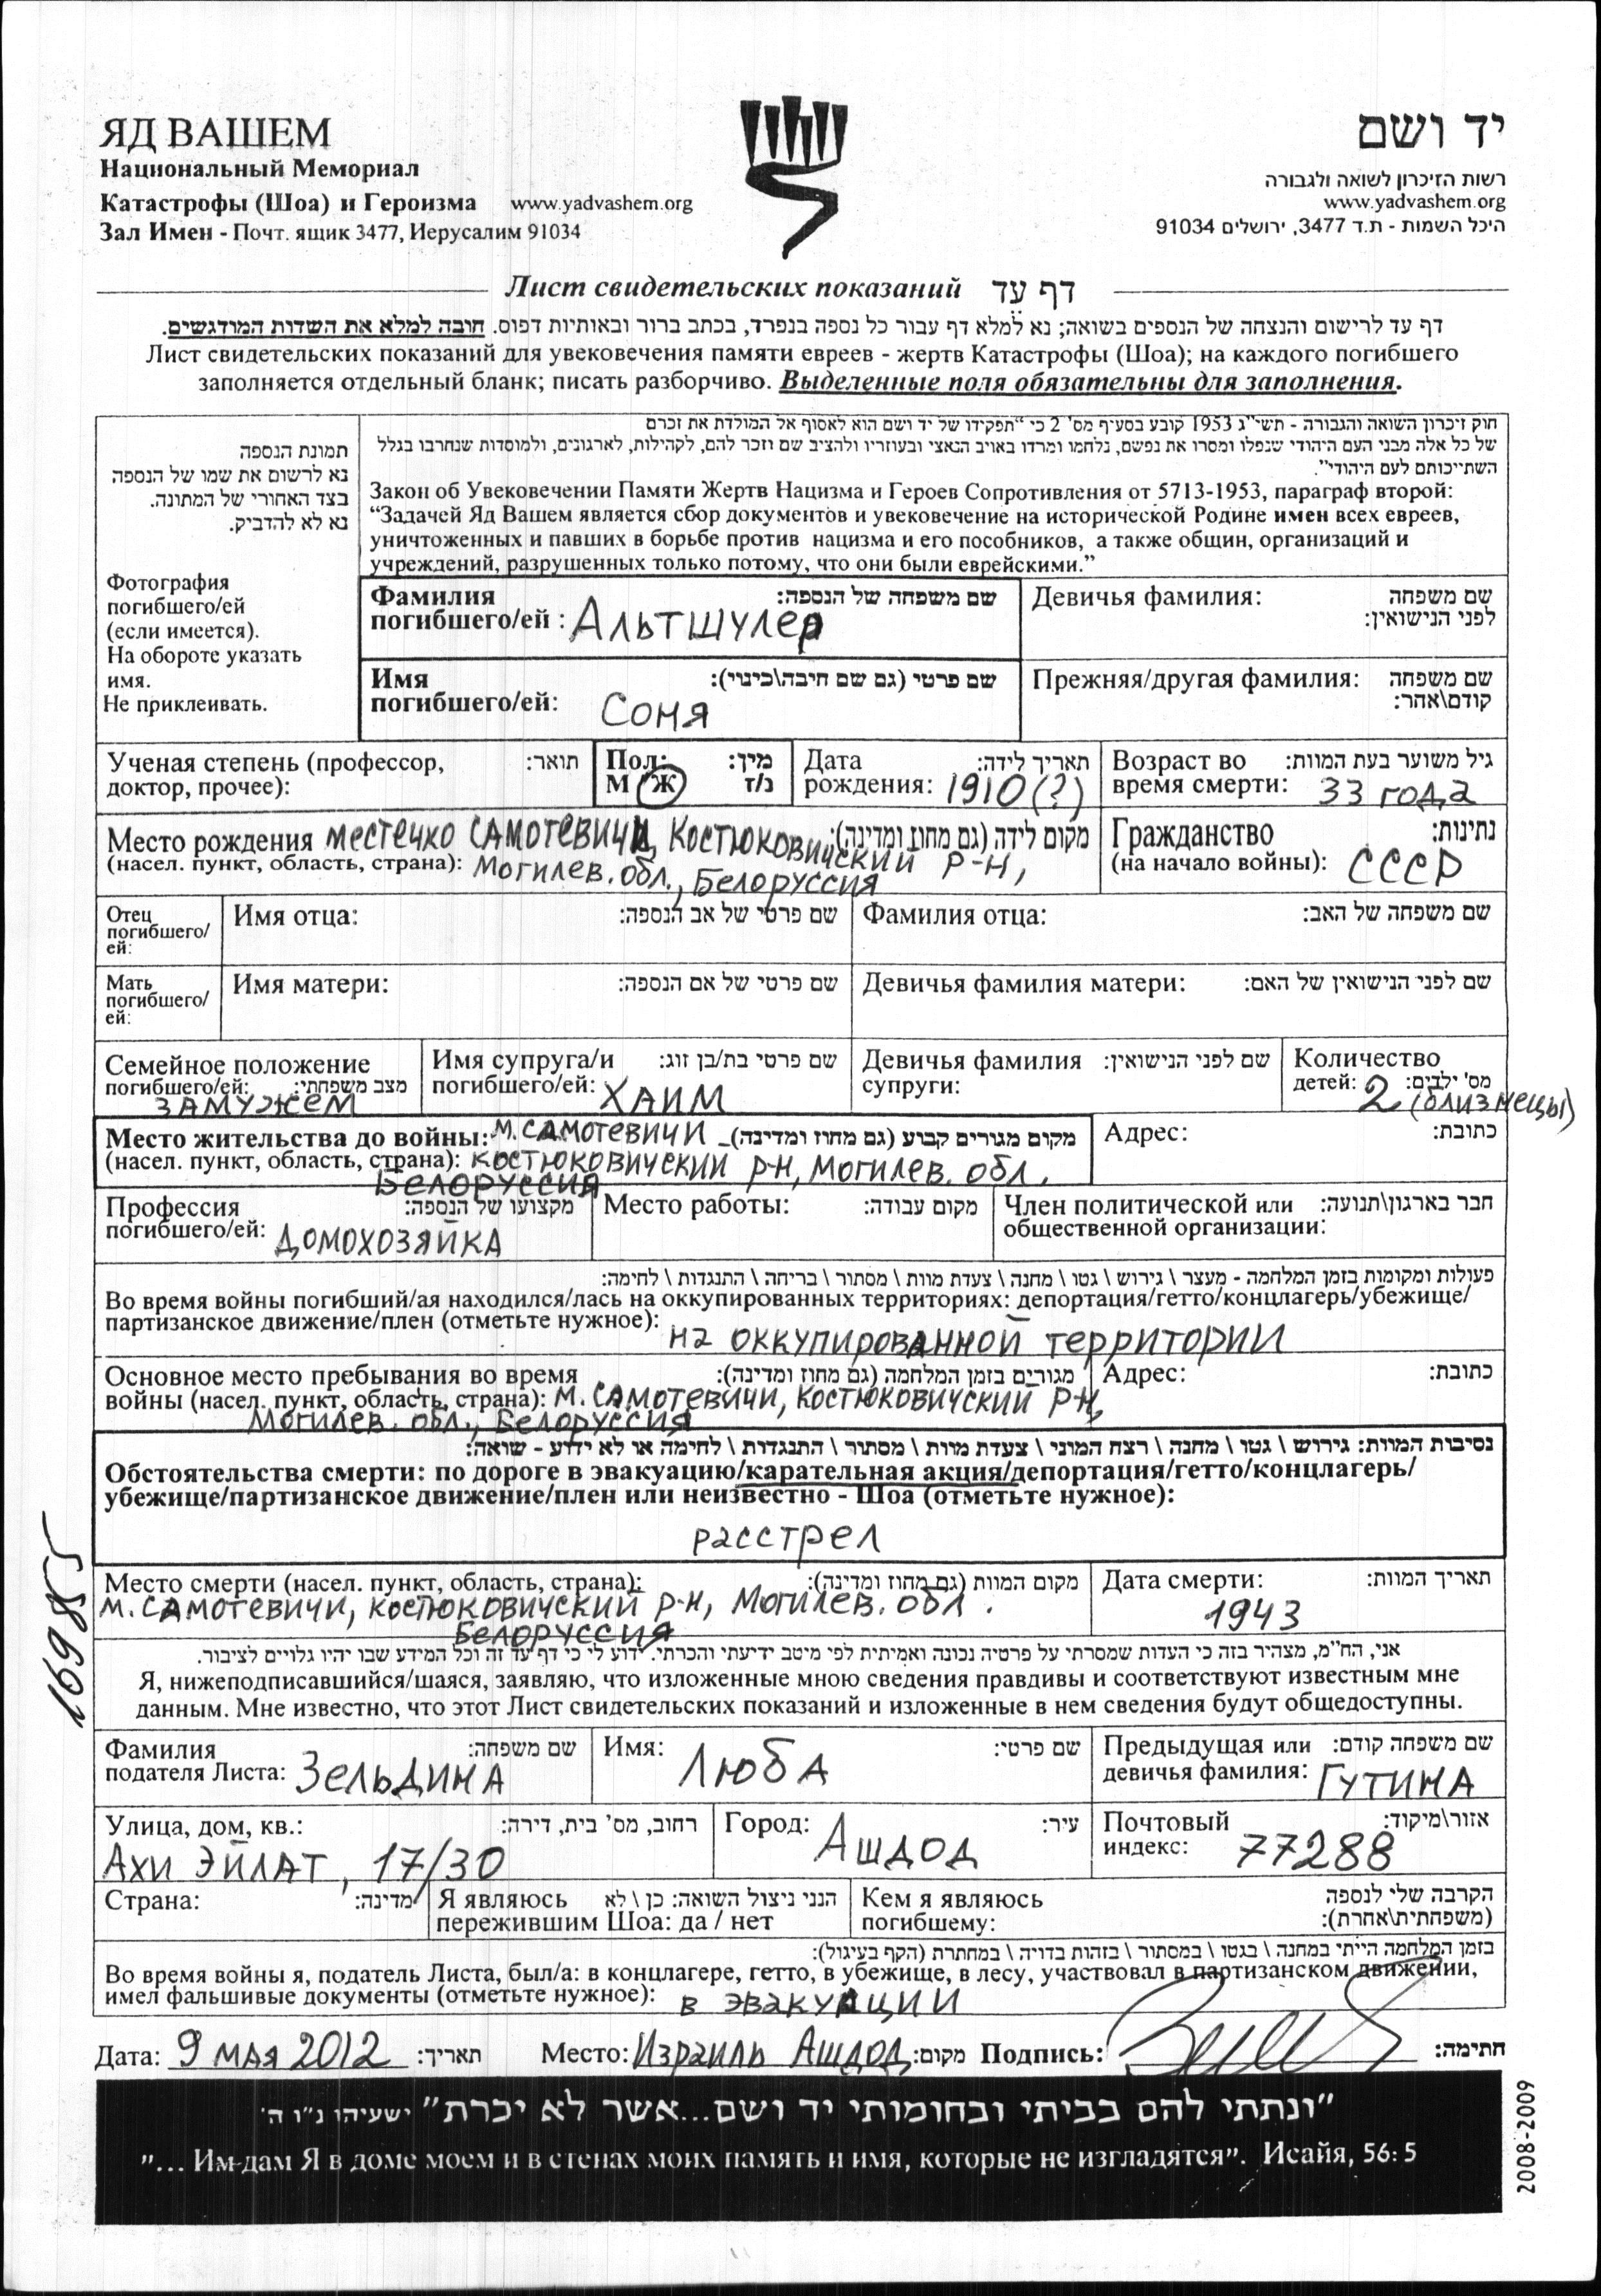 ЯД ВАШЕМ
Национальный Мемориал
Катастрофы (Шоа) и Героизма www.yadvashem.org
Зал Имен - Почт. ящик 3477, Иерусалим 91034
יד ושם
רשות הזיכרון לשואה ולגבורה
www.yadvashem.org
היכל השמות - ת.ד 3477, ירושלים 91034
Лист свидетельских показаний דף עד
דף עד לרישום והנצחה של הנספים בשואה; נא למלא דף עבור כל נספה בנפרד, בכתב ברור ובאותיות דפוס. חובה למלא את השדות המודגשים.
Лист свидетельских показаний для увековечения памяти евреев - жертв Катастрофы (Шоа); на каждого погибшего
заполняется отдельный бланк; писать разборчиво. Выделенные поля обязательны для заполнения.
תמונת הנספה
נא לרשום את שמו של הנספה
בצד האחורי של המתונה.
נא לא להדביק.
Фотография
погибшего/ей
(если имеется).
На обороте указать
имя.
Не приклеивать.
חוק זיכרון השואה והגבורה - תשי"ג 1953 קובע בסעיף מס' 2 כי "תפקידו של יד ושם הוא לאסוף אל המולדת את זכרם
של כל אלה מבני העם היהודי שנפלו ומסרו את נפשם, נלחמו ומרדו באויב הנאצי ובעוזריו ולהציב שם וזכר להם, לקהילות, לארגונים, ולמוסדות שנחרבו בגלל
השתייכותם לעם היהודי".
Закон об Увековечении Памяти Жертв Нацизма и Героев Сопротивления от 5713-1953, параграф второй:
“Задачей Яд Вашем является сбор документов и увековечение на исторической Родине имен всех евреев,
уничтоженных и павших в борьбе против нацизма и его пособников, а также общин, организаций и
учреждений, разрушенных только потому, что они были еврейскими.”
Фамилия שם משפחה של הנספה:
погибшего/ей : Альтшулер
Девичья фамилия: שם משפחה
לפני הנישואין:
Имя שם פרטי (גם שם חיבה\כינוי):
погибшего/ей: Соня
Прежняя/другая фамилия: שם משפחה
קודם\אחר:
Ученая степень (профессор, תואר:
доктор, прочее):
Пол: מין:
М Ж ז/נ
Дата תאריך לידה:
рождения: 1910(?)
Возраст во גיל משוער בעת המוות:
время смерти: 33 года
Место рождения местечко Самотевичи, Костюковичский р-н, מקום לידה (גם מחוז ומדינה):
(насел. пункт, область, страна): Могилев. обл., Белоруссия
Гражданство נתינות:
(на начало войны): СССР
Отец
погибшего/
ей:
Имя отца: שם פרטי של אב הנספה:
Фамилия отца: שם משפחה של האב:
Мать
погибшего/
ей:
Имя матери: שם פרטי של אם הנספה:
Девичья фамилия матери: שם לפני הנישואין של האם:
Семейное положение
погибшего/ей: מצב משפחתי:
замужем
Имя супруга/и שם פרטי בת/בן זוג:
погибшего/ей: Хаим
Девичья фамилия שם לפני הנישואין:
супруги:
Количество
детей: מס' ילדים:
2 (близнецы)
Место жительства до войны: м. Самотевичи מקום מגורים קבוע (גם מחוז ומדינה)
(насел. пункт, область, страна): Костюковичский р-н, Могилев. обл.
Белоруссия
Адрес: כתובת:
Профессия מקצועו של הנספה:
погибшего/ей: домохозяйка
Место работы: מקום עבודה:
Член политической или חבר בארגון\תנועה:
общественной организации:
פעולות ומקומות בזמן המלחמה - מעצר \ גירוש \ גטו \ מחנה \ צעדת מוות \ מסתור \ בריחה \ התנגדות \ לחימה:
Во время войны погибший/ая находился/лась на оккупированных территориях: депортация/гетто/концлагерь/убежище/
партизанское движение/плен (отметьте нужное): на оккупированной территории
Основное место пребывания во время מגורים בזמן המלחמה (גם מחוז ומדינה):
войны (насел. пункт, область, страна): м. Самотевичи, Костюковичский р-н,
Могилев. обл., Белоруссия
Адрес: כתובת:
נסיבות המוות: גירוש \ גטו \ מחנה \ רצח המוני \ צעדת מוות \ מסתור \ התנגדות \ לחימה או לא ידוע - שואה:
Обстоятельства смерти: по дороге в эвакуацию/карательная акция/депортация/гетто/концлагерь/
убежище/партизанское движение/плен или неизвестно - Шоа (отметьте нужное):
расстрел
Место смерти (насел. пункт, область, страна): מקום המוות (גם מחוז ומדינה):
м. Самотевичи, Костюковичский р-н, Могилев. обл.
Белоруссия
Дата смерти: תאריך המוות:
1943
אני, הח"מ, מצהיר בזה כי העדות שמסרתי על פרטיה נכונה ואמיתית לפי מיטב ידיעתי והכרתי. ידוע לי כי דף עד זה וכל המידע שבו יהיו גלויים לציבור.
Я, нижеподписавшийся/шаяся, заявляю, что изложенные мною сведения правдивы и соответствуют известным мне
данным. Мне известно, что этот Лист свидетельских показаний и изложенные в нем сведения будут общедоступны.
Фамилия שם משפחה:
подателя Листа: Зельдина
Имя: Люба שם פרטי:
Предыдущая или שם משפחה קודם:
девичья фамилия: Гутина
Улица, дом, кв.: רחוב, מס' בית, דירה:
Ахи Эйлат, 17/30
Город: Ашдод עיר:
Почтовый אזור\מיקוד:
индекс: 77288
Страна: מדינה:
Я являюсь הנני ניצול השואה: כן \ לא
пережившим Шоа: да / нет
Кем я являюсь הקרבה שלי לנספה
погибшему: (משפחתית\אחרת):
בזמן המלחמה הייתי במחנה \ בגטו \ במסתור \ בזהות בדויה \ במחתרת (הקף בעיגול):
Во время войны я, податель Листа, был/а: в концлагере, гетто, в убежище, в лесу, участвовал в партизанском движении,
имел фальшивые документы (отметьте нужное): в эвакуации
Дата: 9 мая 2012 תאריך: Место: Израиль Ашдод מקום: Подпись: חתימה:
"ונתתי להם בביתי ובחומותי יד ושם...אשר לא יכרת" ישעיהו נ"ו ה'
"... Им дам Я в доме моем и в стенах моих память и имя, которые не изгладятся". Исайя, 56: 5
2008-2009
16985